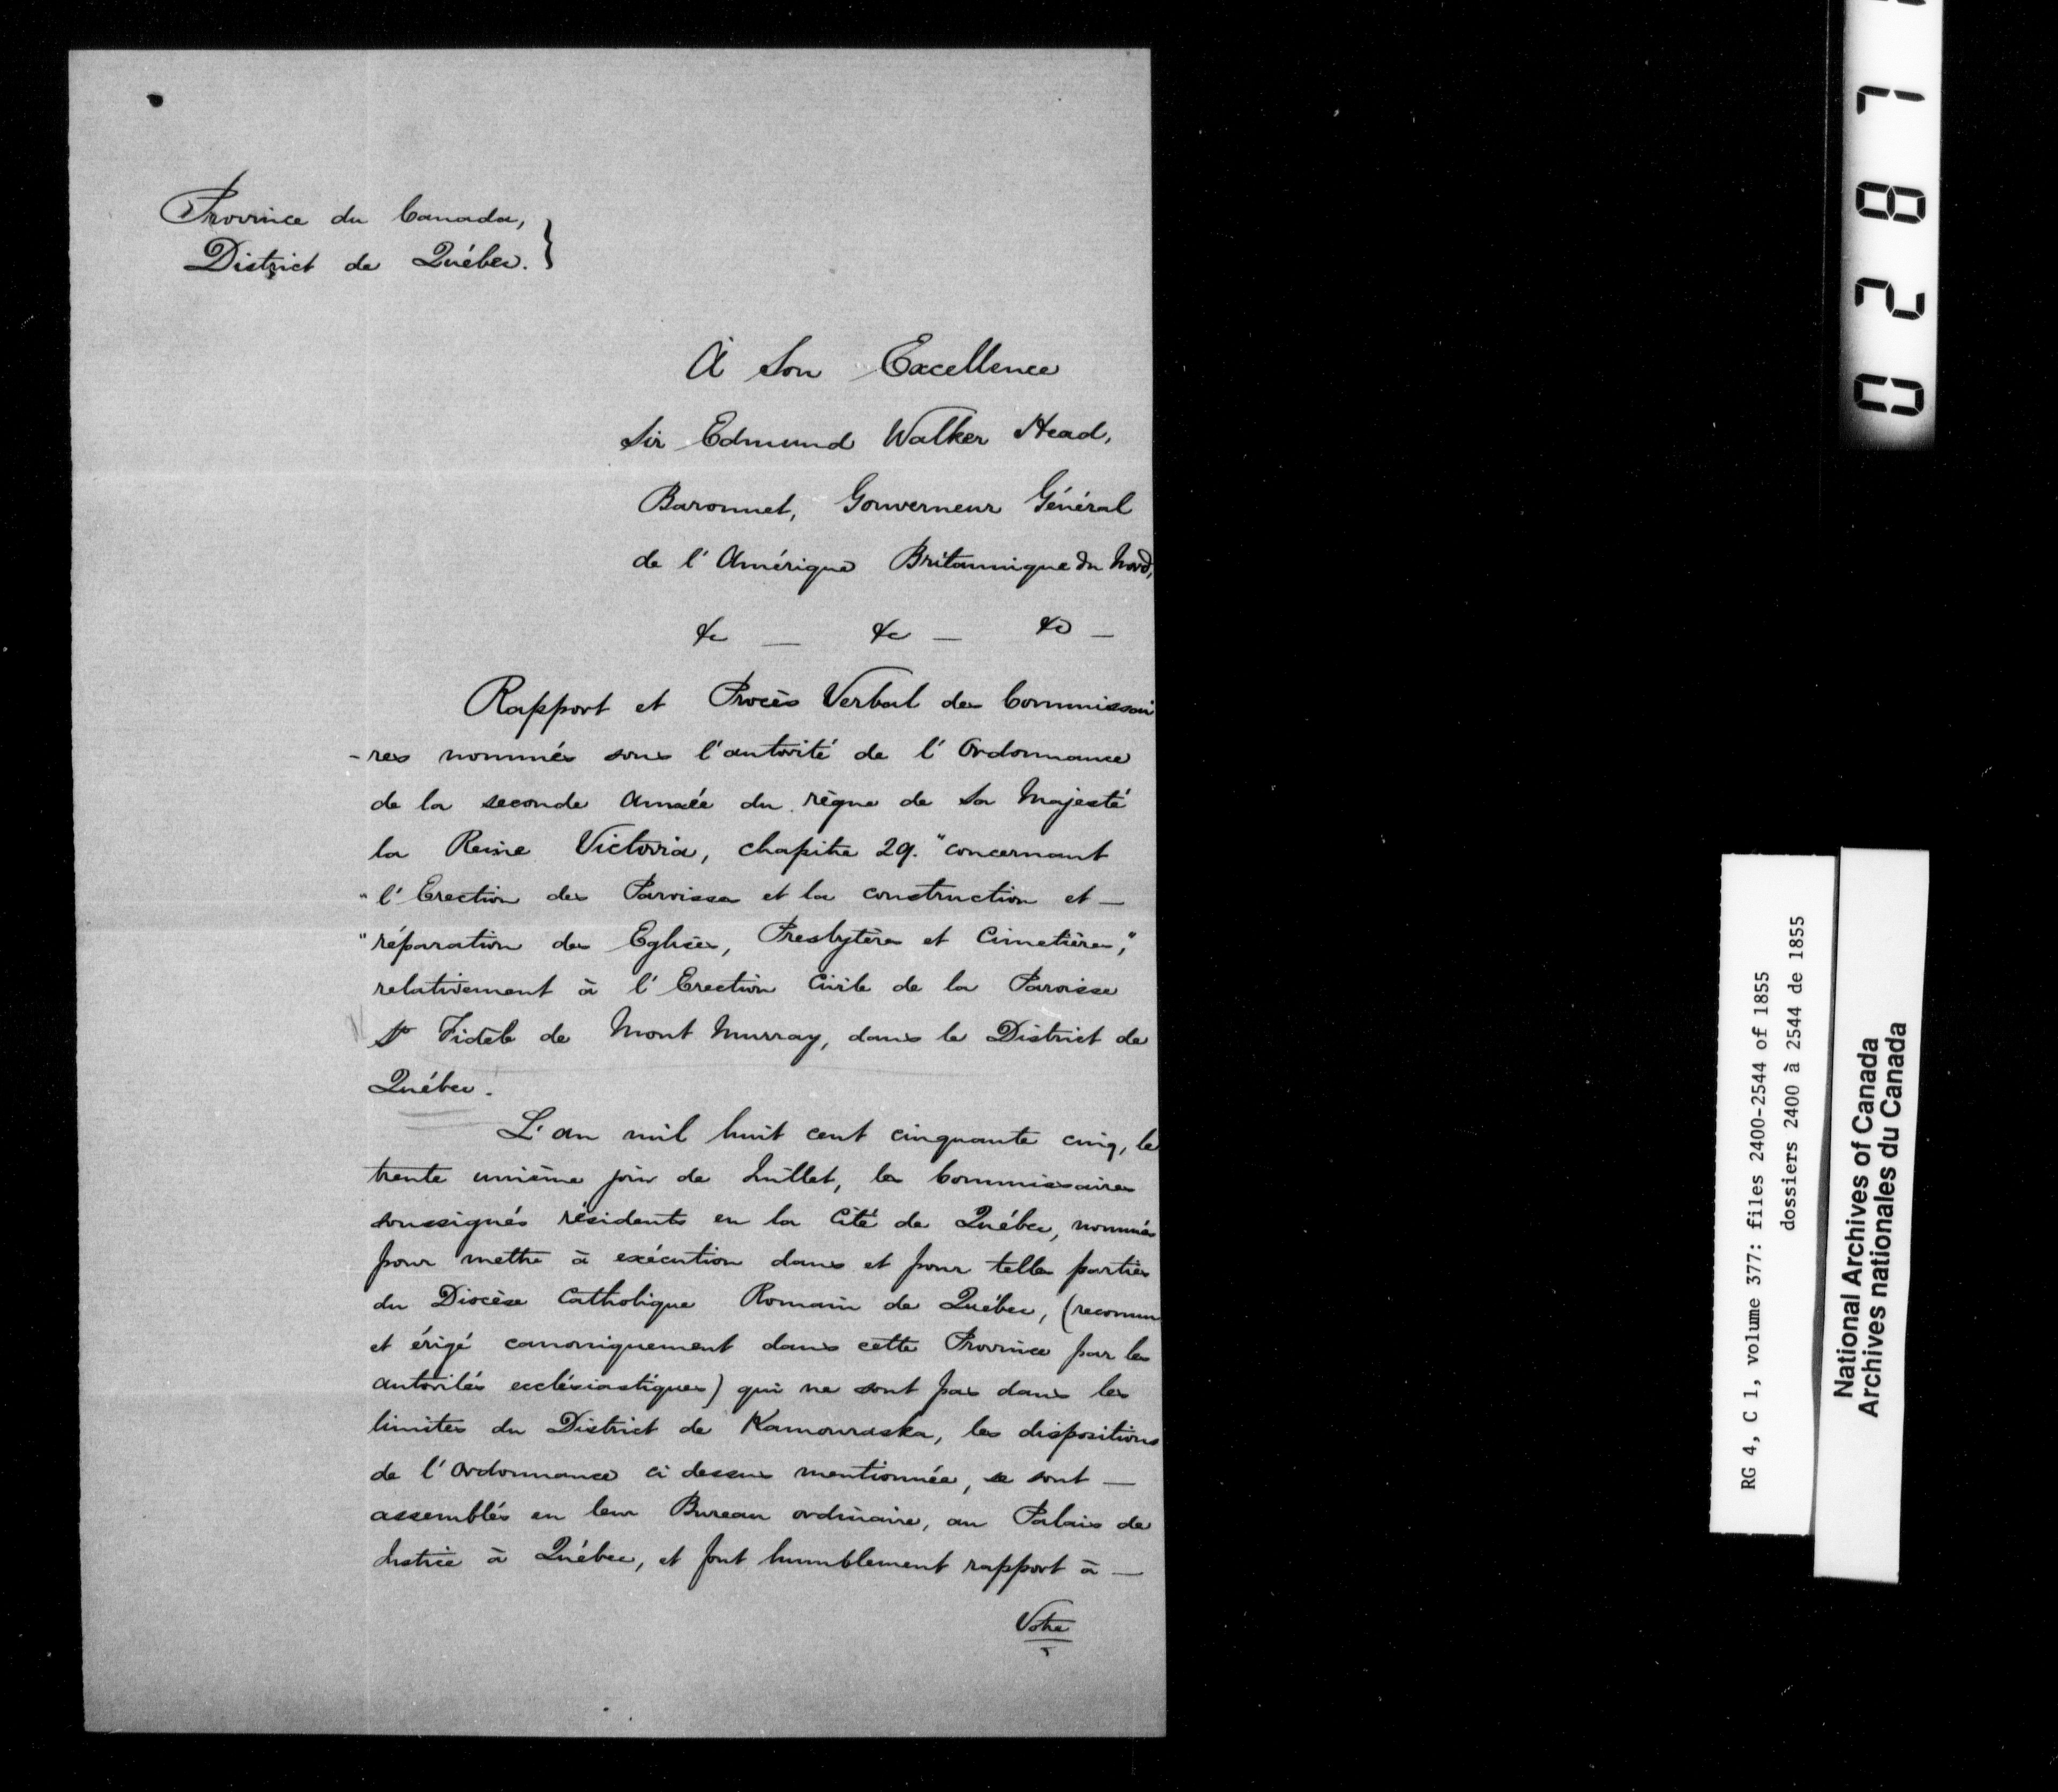 Province du Canada,
District de Québec. }
À Son Excellence
Sir Edmund Walker Head,
Baronnet, Gouverneur Général
de l'Amérique Britannique du Nord,
&c — &c — &c —
Rapport et Procès Verbal des Commissai
-res nommés sous l'autorité de l'Ordonnance
de la seconde Année du règne de Sa Majesté
la Reine Victoria, chapitre 29. "concernant
"l'Erection des Paroisses et la construction et —
"réparation des Eglises, Presbytères et Cimetières,"
relativement à l'Erection Civile de la Paroisse
St Fidèle de Mont Murray, dans le District de
Québec.
L'an mil huit cent cinquante cinq, le
trente unième jour de Juillet, les Commissaires
soussignés résidents en la Cité de Québec, nommés
pour mettre à exécution dans et pour telles parties
du Diocèse Catholique Romain de Québec, (reconnu
et érigé canoniquement dans cette Province par les
autorités ecclésiastiques) qui ne sont pas dans les
limites du District de Kamouraska, les dispositions
de l'Ordonnance ci dessus mentionnée, se sont —
assemblés en leur Bureau ordinaire, au Palais de
Justice à Québec, et font humblement rapport à —
Votre
0287
RG 4, C 1, volume 377: files 2400-2544 of 1855
dossiers 2400 à 2544 de 1855
National Archives of Canada
Archives nationales du Canada